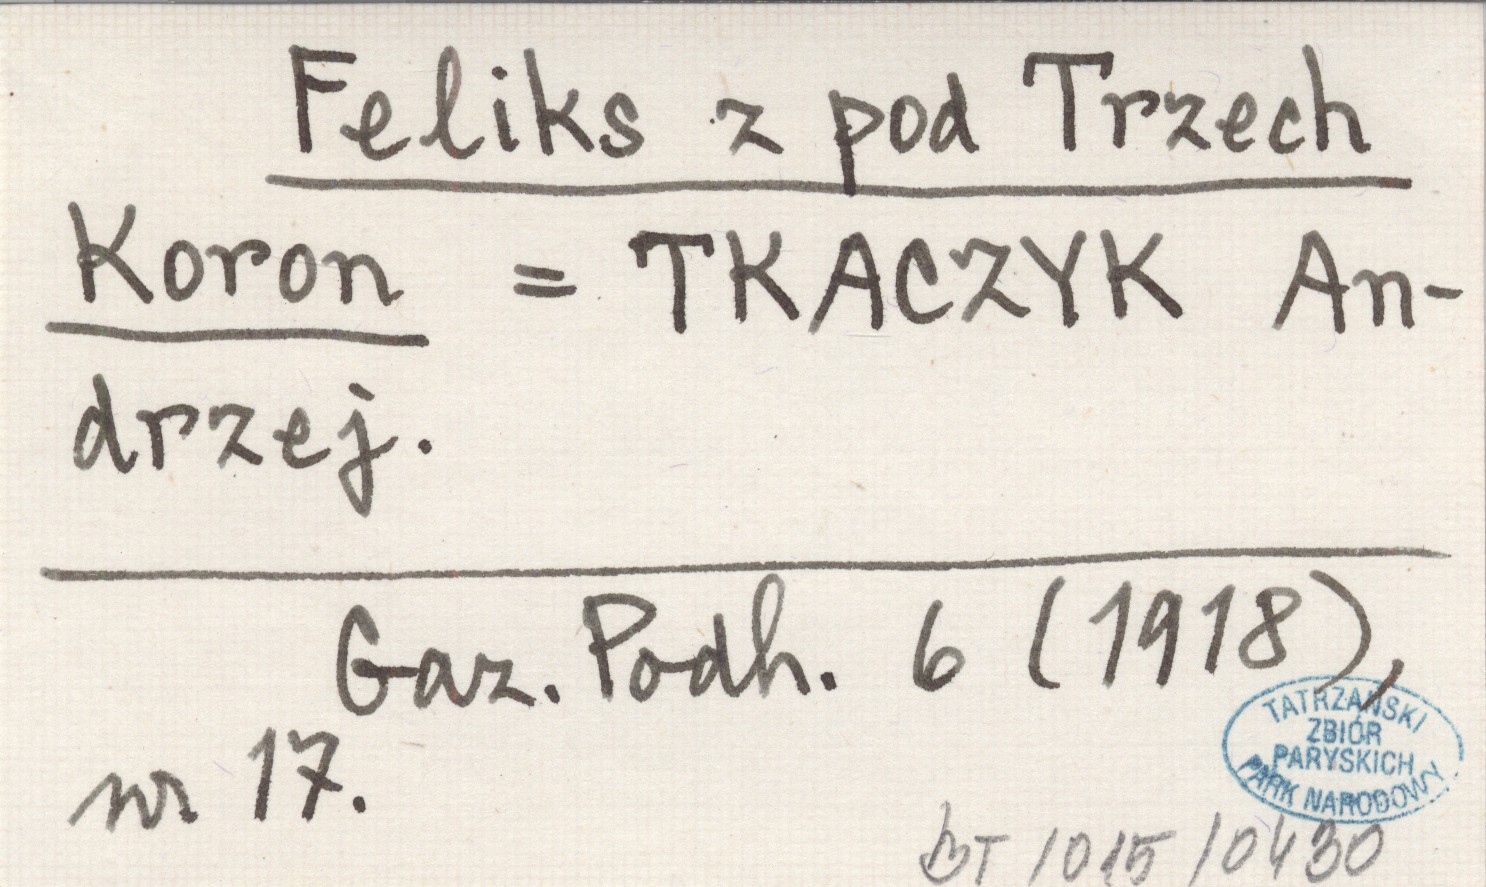 Feliks z pod Trzech
Koron = TKACZYK An-
drzej.
Gaz. Podh. 6 (1918),
nr 17.
TATRZAŃSKI
ZBIÓR
PARYSKICH
PARK NARODOWY
BT / 015 / 0430